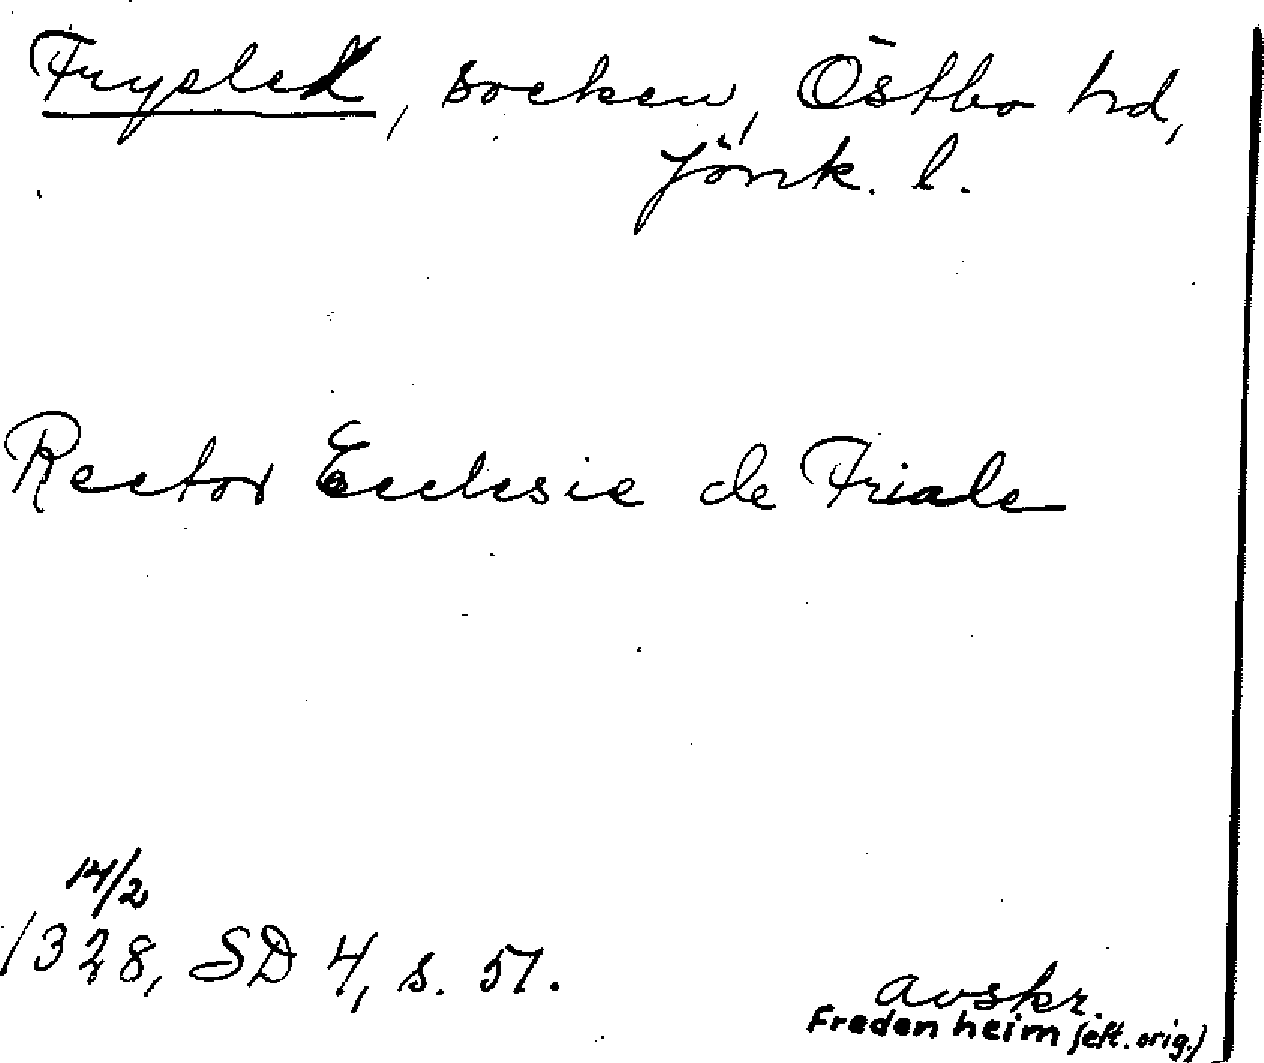 Fryele, socken, Östbo hd,
Jönk. l.
Rector Ecclesie de Friale
14/2
1328, SD 4, s. 51.
avskr.
Fredenheim (eft. orig.)